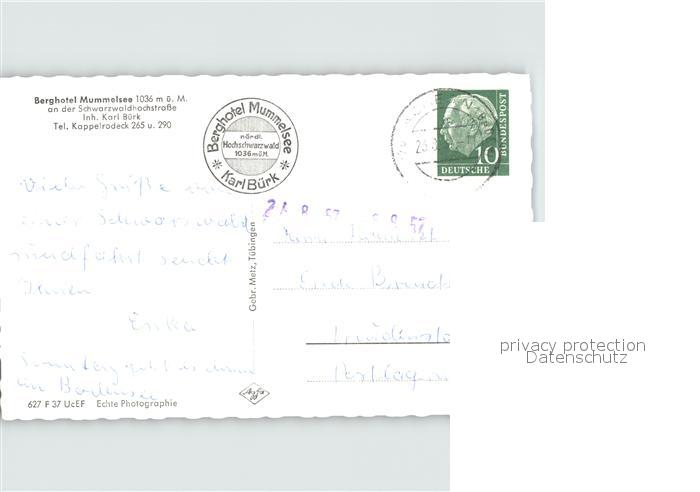 Berghotel Mummelsee 1036 m ü. M.
an der Schwarzwaldhochstraße
Inh. Karl Bürk
Tel. Kappelrodeck 265 u. 290
Berghotel Mummelsee
nördl.
Hochschwarzwald
1036 m ü. M.
Karl Bürk
10
BUNDESPOST
DEUTSCHE
Viele Grüße von
einer Schwarzwald
rundfahrt sendet
Ihnen
Erika
Sonntag geht es dann
an Bodensee
Gebr. Metz, Tübingen
Herrn
Erich
Postlag
627 F 37 UcEF Echte Photographie
Agfa
privacy protection
Datenschutz